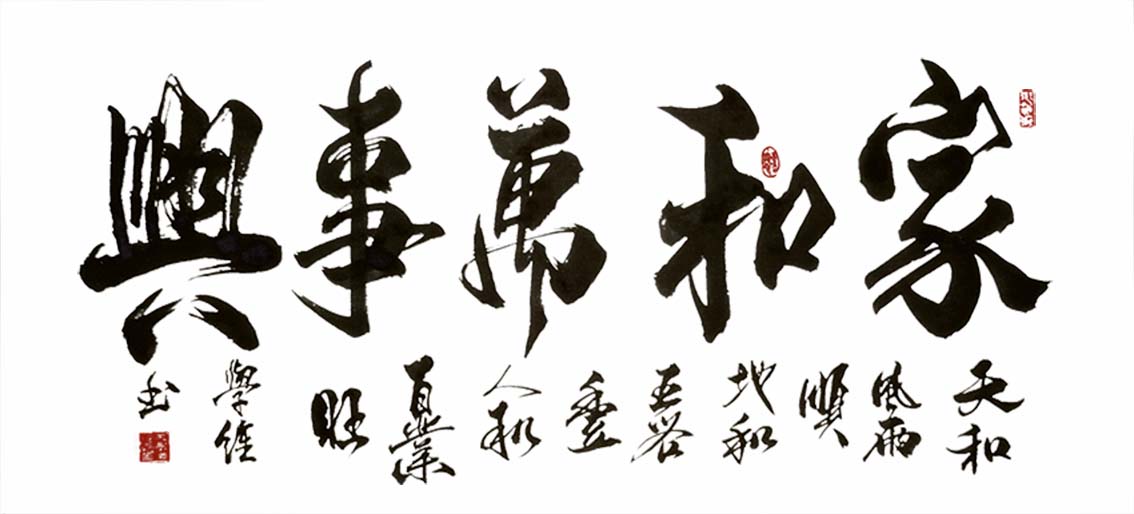 家和萬事興
天和風雨順地和五谷豐人和百業旺
學維书